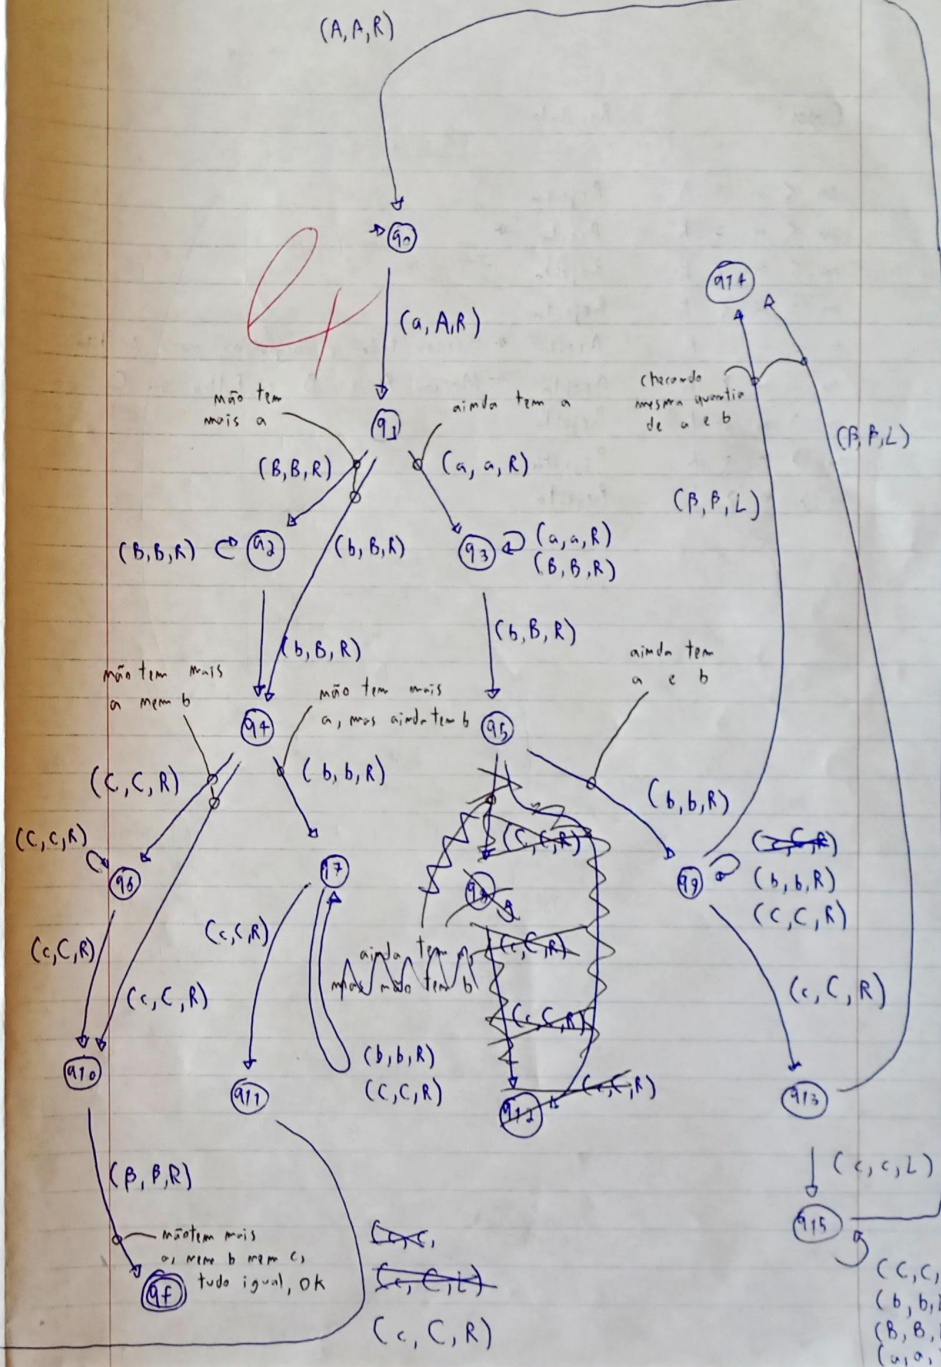 (A, A, R)
q0
(a, A, R)
q1
não tem
mais a
ainda tem a
(B, B, R)
(a, a, R)
q14
checando
mesma quantia
de a e b
(β, β, L)
(β, β, L)
(B, B, R)
q2
(b, B, R)
q3
(a, a, R)
(B, B, R)
(b, B, R)
(b, B, R)
não tem mais
a nem b
não tem mais
a, mas ainda tem b
ainda tem
a e b
q4
q5
(C, C, R)
(b, b, R)
(b, b, R)
(C, C, R)
q6
q7
(C, C, R)
q9
(c, C, R)
(b, b, R)
(C, C, R)
(c, C, R)
(c, C, R)
(c, C, R)
ainda tem a,
mas não tem b
(c, C, R)
(c, C, R)
(c, C, R)
q10
q11
(b, b, R)
(C, C, R)
q12
(c, C, R)
q13
(β, β, R)
(c, c, L)
q15
não tem mais
a, nem b nem c,
tudo igual, ok
qf
(c, C, L)
(c, C, R)
(C, C,
(b, b,
(B, B,
(a, a,